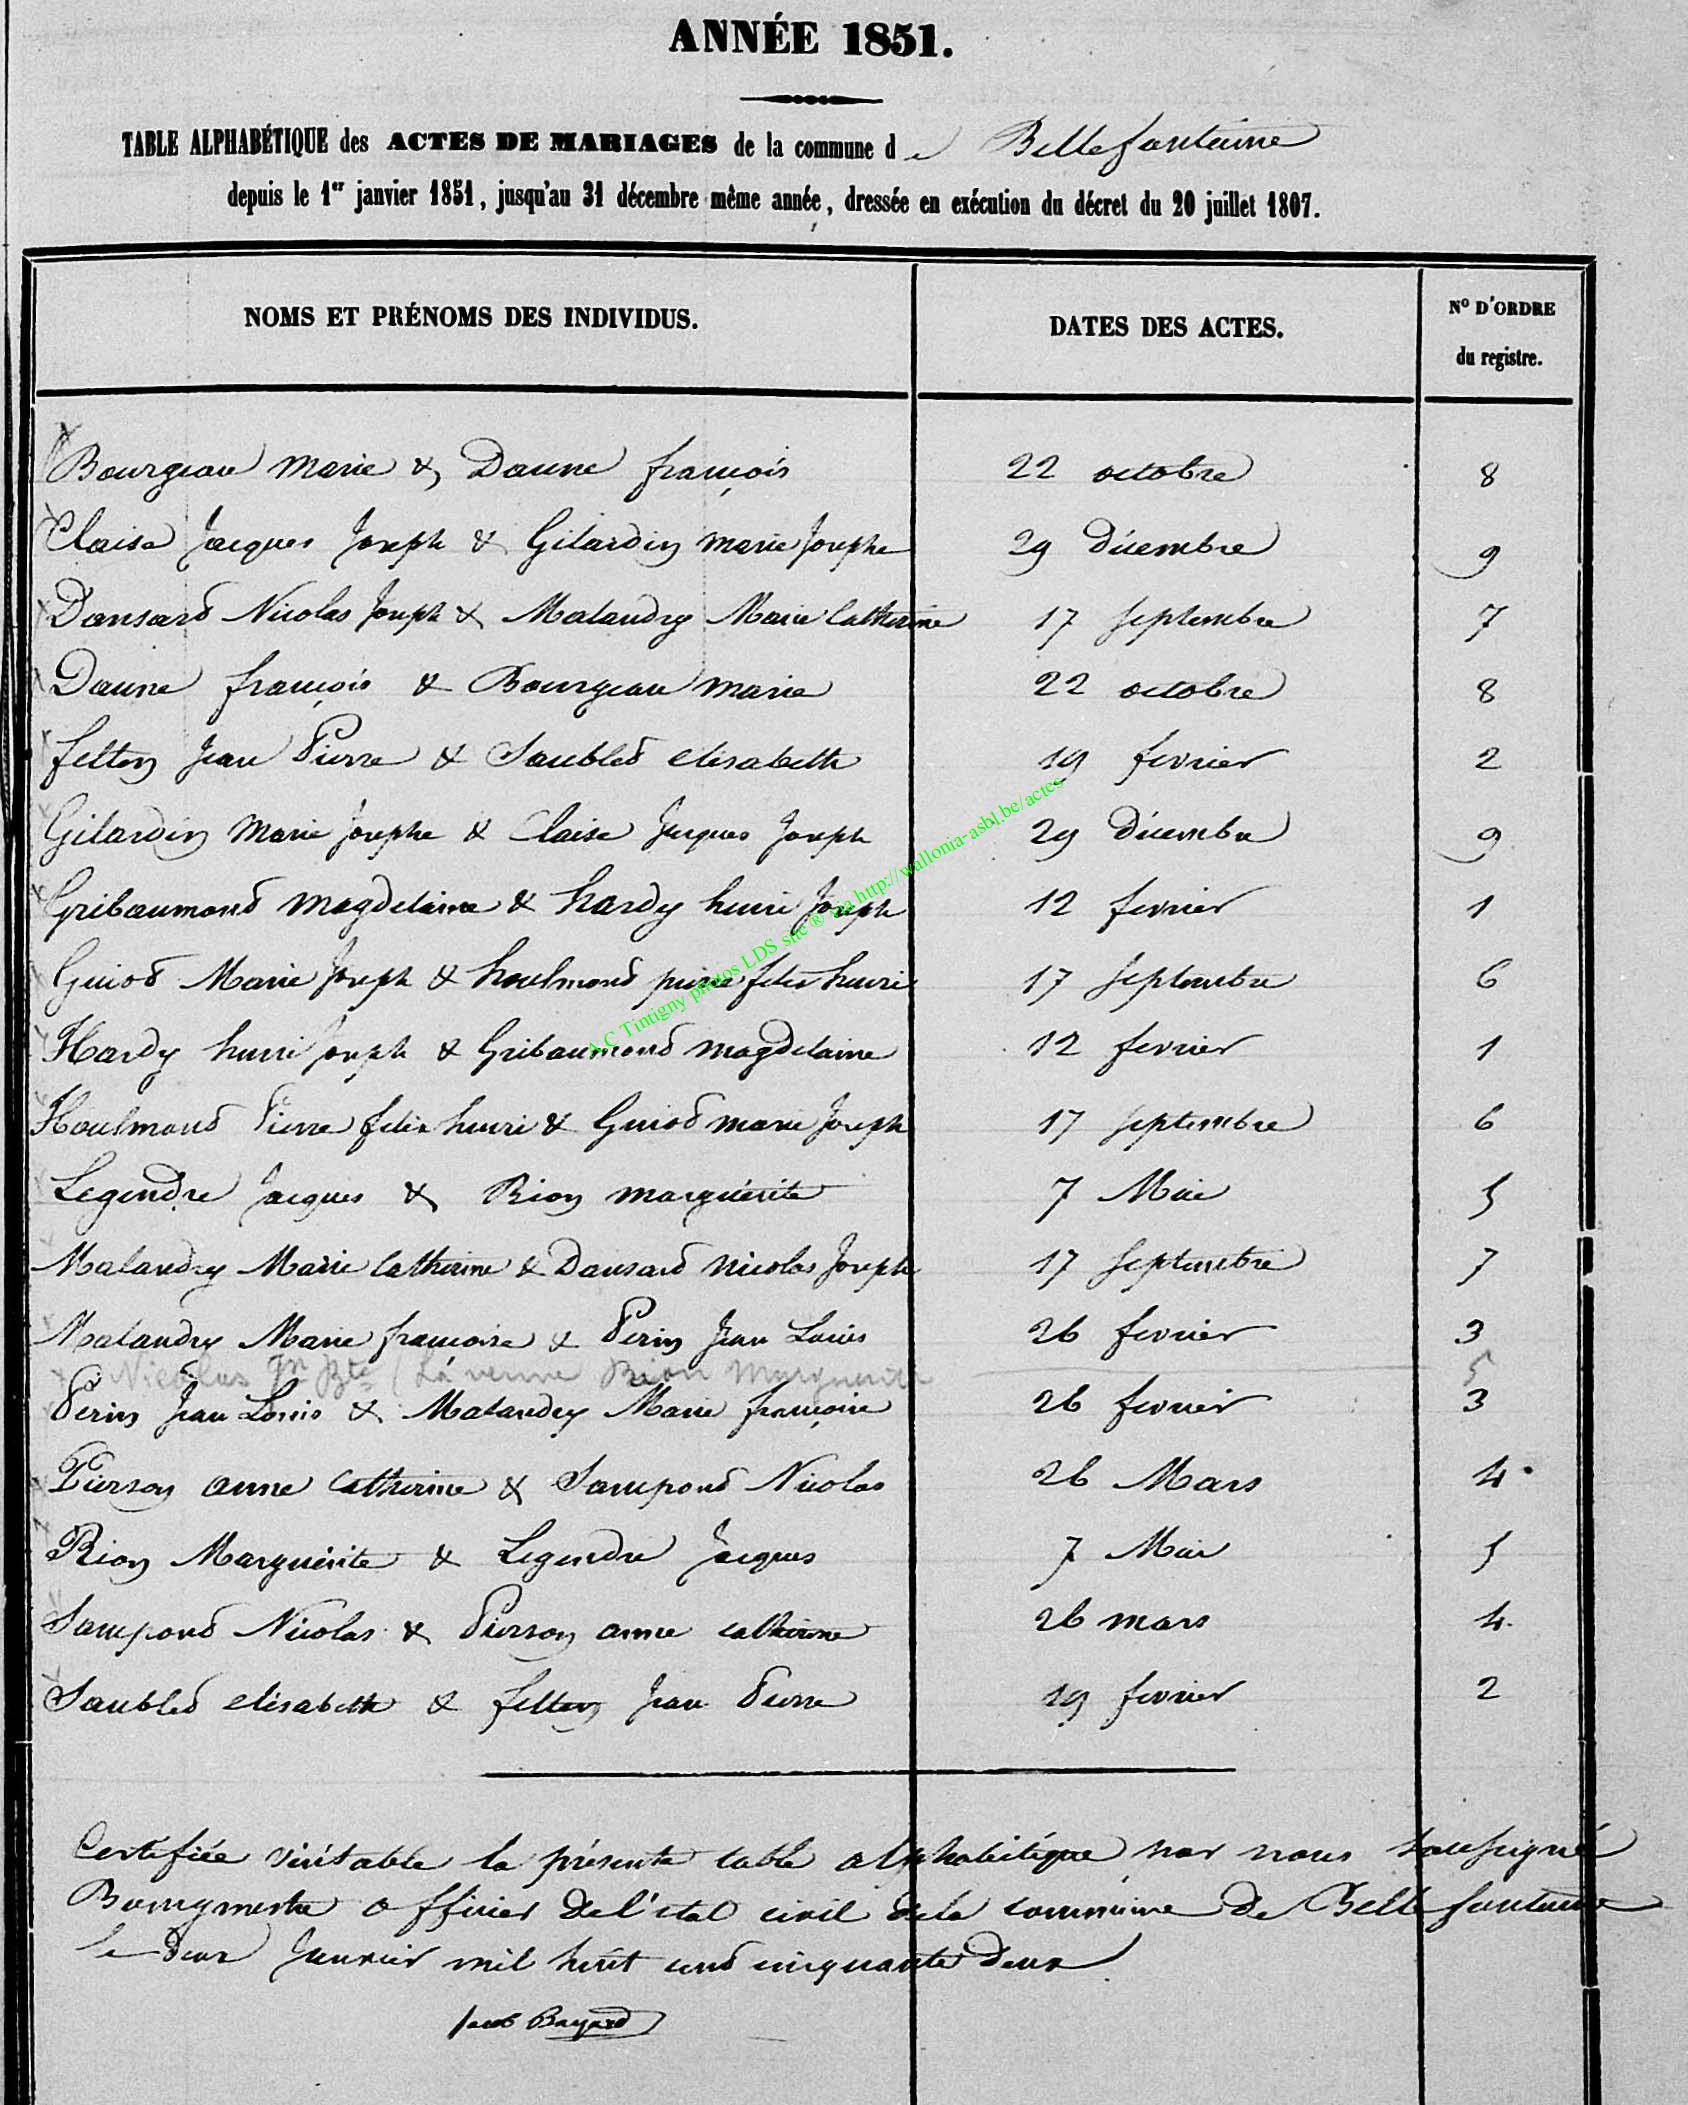 ANNÉE 1851.
TABLE ALPHABÉTIQUE des ACTES DE MARIAGES de la commune de Bellefontaine
depuis le 1er janvier 1851, jusqu'au 31 décembre même année, dressée en exécution du décret du 20 juillet 1807.
NOMS ET PRÉNOMS DES INDIVIDUS. DATES DES ACTES. No D'ORDRE du registre.
Bourgeau marie & Daune françois 22 octobre 8
Claise Jacques Joseph & Gilardin marie Josephe 29 Décembre 9
Dansard Nicolas Joseph & Malaudry Marie Catherine 17 Septembre 7
Daune françois & Bourgeau marie 22 octobre 8
felten Jean Pierre & Saubled elisabeth 19 fevrier 2
Gilardin Marie Josephe & Claise Jacques Joseph 29 Décembre 9
Gribaumond magdelaine & hardy henri Joseph 12 fevrier 1
Guiod Marie Joseph & houlmond pierre felix henri 17 Septembre 6
Hardy henri Joseph & Gribaumond magdelaine 12 fevrier 1
Houlmond Pierre felix henri & Guiod marie Joseph 17 septembre 6
Legendre Jacques & Rion marguérite 7 Mai 5
Malaudry Marie Catherine & Dansard nicolas Joseph 17 Septembre 7
Malaudry Marie françoise & Perin Jean Louis 26 fevrier 3
Nicolas Jn Bte (La veuve Rion Marguerite 5
Perin Jean Louis & Malaudry Marie françoise 26 fevrier 3
Pierson anne Catherine & Sampond Nicolas 26 Mars 4
Rion Marguérite & Legendre Jacques 7 Mai 5
Sampond Nicolas & Pierson anne catherine 26 mars 4
Saubled elisabeth & felten Jean Pierre 19 fevrier 2
Certifiée véritable la présente table alphabétique par nous soussigné
Bourgmestre officier de l'état civil de la commune de Bellefontaine
le deux Janvier mil huit cent cinquante deux
Jacob Bayard
A.C Tintigny photos LDS site® via http://wallonia-asbl.be/actes